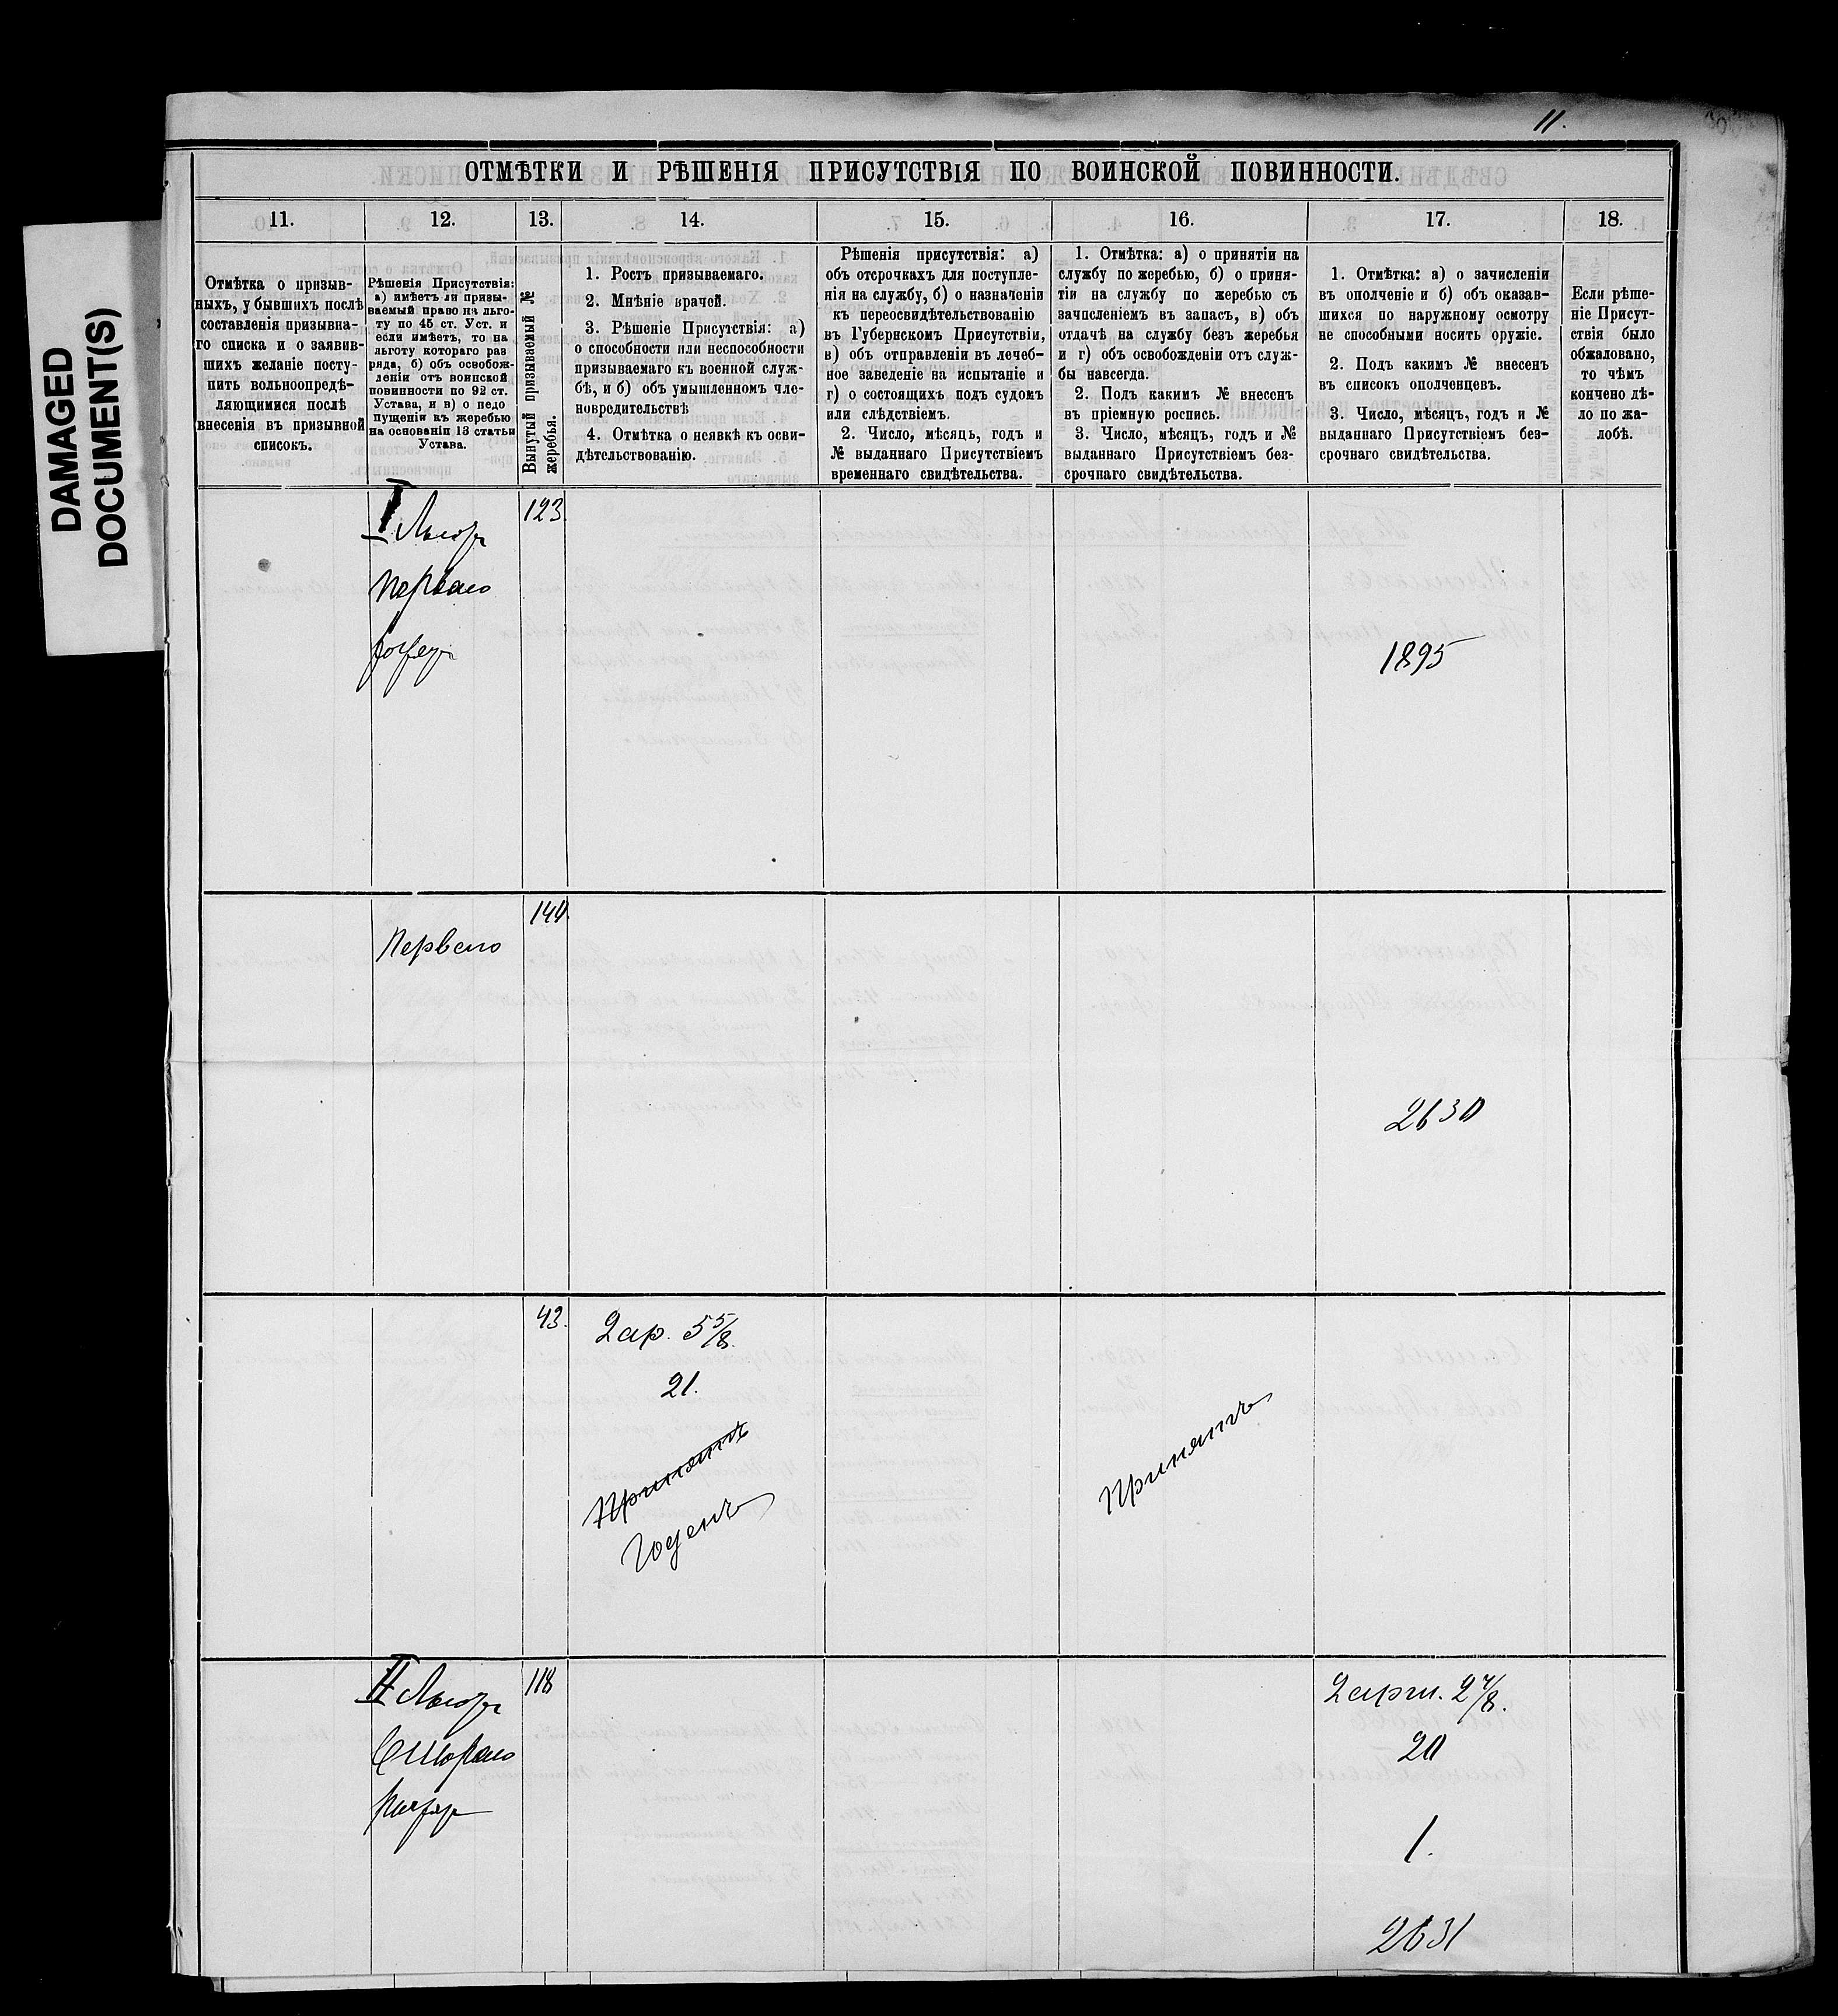 DAMAGED
DOCUMENT(S)
11.
ОТМѢТКИ И РѢШЕНІЯ ПРИСУТСТВІЯ ПО ВОИНСКОЙ ПОВИННОСТИ.
11.
12.
13.
14.
15.
16.
17.
18.
Отмѣтка о призыв-
ныхъ, у бывшихъ послѣ
составленія призывна-
го списка и о заявив-
шихъ желаніе посту-
пить вольноопредѣ-
ляющимися послѣ
внесенія въ призывной
списокъ.
Рѣшенія Присутствія:
а) имѣетъ ли призы-
ваемый право на льго-
ту по 45 ст. Уст. и
если имѣетъ, то на
льготу котораго раз
ряда, б) объ освобож-
деніи отъ воинской
повинности по 92 ст.
Устава, и в) о недо
пущеніи къ жеребью
на основаніи 13 статьи
Устава.
Вынутый призываемый №
жеребья.
1. Ростъ призываемаго.
2. Мнѣніе врачей.
3. Рѣшеніе Присутствія: а)
о способности или неспособности
призываемаго къ военной служ-
бѣ, и б) объ умышленномъ чле-
новредительствѣ
4. Отмѣтка о неявкѣ къ осви-
дѣтельствованію.
Рѣшенія присутствія: а)
объ отсрочкахъ для поступле-
нія на службу, б) о назначеніи
къ переосвидѣтельствованію
въ Губернскомъ Присутствіи,
в) объ отправленіи въ лечеб-
ное заведеніе на испытаніе и
г) о состоящихъ подъ судомъ
или слѣдствіемъ.
2. Число, мѣсяць, годъ и
№ выданнаго Присутствіемъ
временнаго свидѣтельства.
1. Отмѣтка: а) о принятіи на
службу по жеребью, б) о приня-
тіи на службу по жеребью съ
зачисленіемъ въ запасъ, в) объ
отдачѣ на службу безъ жеребья
и г) объ освобожденіи отъ служ-
бы навсегда.
2. Подъ какимъ № внесенъ
въ пріемную роспись.
3. Число, мѣсяцъ, годъ и №
выданнаго Присутствіемъ без-
срочнаго свидѣтельства.
1. Отмѣтка: а) о зачисленіи
въ ополченіе и б) объ оказав-
шихся по наружному осмотру
не способными носить оружіе.
2. Подъ какимъ № внесенъ
въ списокъ ополченцевъ.
3. Число, мѣсяцъ, годъ и №
выданнаго Присутствіемъ без-
срочнаго свидѣтельства.
Если рѣше-
ніе Присут-
ствія было
обжаловано,
то чѣмъ
кончено дѣ-
ло по жа-
лобѣ.
I
123
Перваго
1895
144
Перваго
2630
43.
2 ар. 5 5/8.
21.
Принятъ
Годенъ
Принятъ
II
118
Втораго
20
1.
2631